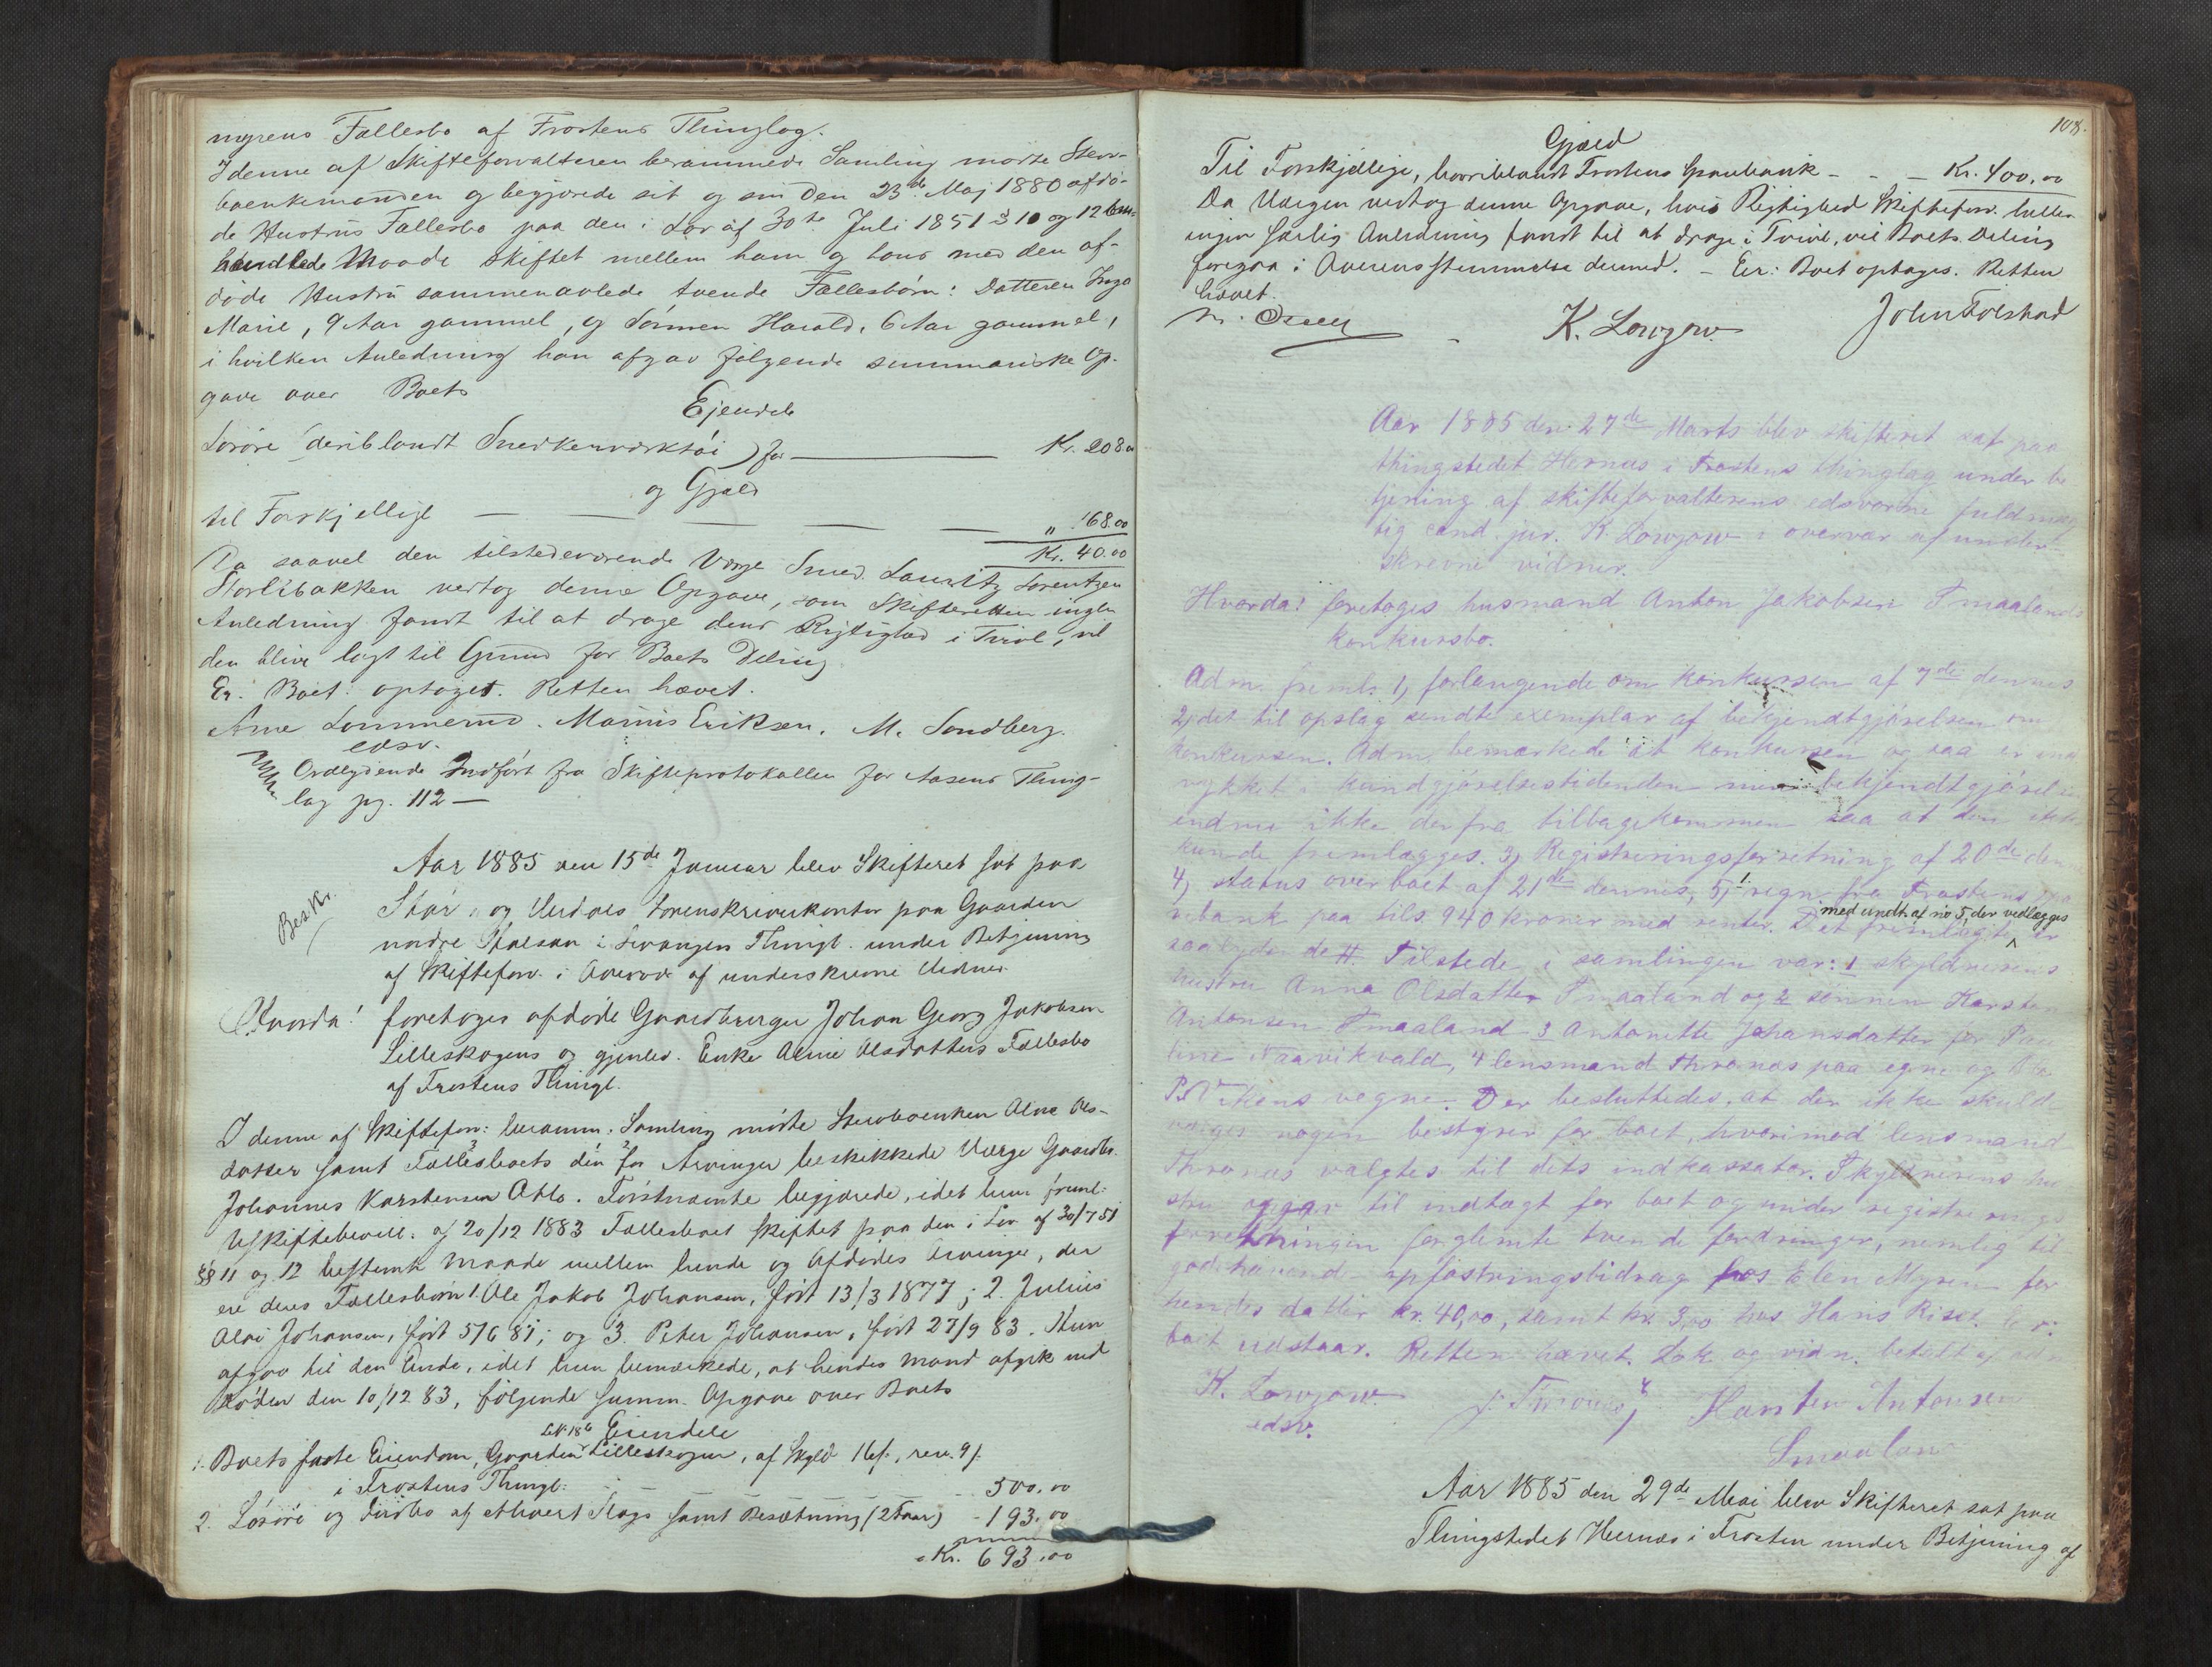 myrens Fællesbo af Frostens Thinglag.
I denne af Skifteforvalteren berammede Samling mødte Sterv-
boenkemanden og begjærede sit og sin den 23de Maj 1880 afdø-
de Hustrus Fællesbo paa den i Lov af 30te Juli 1851 § 10 og 12
Maade skiftet mellem ham og hans med den af-
døde Hustru sammenavlede tvende Fællesbørn: Datteren Inga
Marie, 9 Aar gammel, og Sønnen Harald, 6 Aar gammel,
i hvilken Anledning han afgav følgende summariske Op-
gave over Boets
Ejendele
Løsøre (deriblandt Snedkerværktøi) for — Kr. 208.00
og Gjæld
til Forskjellige — — — — — " 168.00
Kr. 40.00
Da saavel den tilstedeværende Værge Smed Lauritz Lorentzen
Storlibakken vedtog denne Opgave, som Skifteretten ingen
Anledning fandt til at drage dens Rigtighed i Tvivl, vil
den blive lagt til Grund for Boets Deling
Er: Boet: optaget. Retten hævet.
Arne Lommerud. Marius Eriksen. M. Sandberg.
edsv.
Ordlydende Indført fra Skifteprotokollen for Aasens Thing-
lag pg. 112 —
Besk.
Aar 1885 den 15de Januar blev Skifteret sat paa
Stør- og Værdals Sorenskriverkontor paa Gaarden
nordre Stalsan i Levangers Thingl. under Betjening
af Skifteforv. i Overvær af underskrevne Vidner
Hvorda! foretoges afdøde Gaardbruger Johan Georg Jakobsen
Lilleskogens og gjenlev. Enke Aline Olsdatters Fællesbo
af Frostens Thingl.
I denne af Skifteforv: beramm. Samling mødte Stervboenken Aline Ols-
datter samt Fællesboets den for Arvinger beskikkede Værge Gaardbr.
Johannes Karstensen Ahlo. Førstnævnte begjærede, idet hun freml:
Uskiftebevill. af 20/12 1883 Fællesboet skiftet paa den i Lov af 30/7 51
§§ 11 og 12 bestemte Maade mellem hende og Afdødes Arvinger, der
ere deres Fællesbørn 1. Ole Jakob Johansen, født 13/3 1877; 2. Julius
Olai Johansen, født 5/6 81; og 3. Peter Johansen, født 27/9 83. Hun
afgav til den Ende, idet hun bemærkede, at hendes Mand afgik ved
Døden den 10/12 83, følgende summ. Opgave over Boets
Eiendele
LN 18b
1. Boets faste Eiendom, Gaarden Lilleskogen, af Skyld 16 s., rev. 9 s.
i Frostens Thingl: — — — 500.00
2. Løsøre og Indbo af ethvert Slags samt Besætning (2 Faar) - 193.00
- Kr. 693.00
108.
Gjæld
Til Forskjellige, hvoriblandt Frostens Sparebank - - - Kr. 400.00
Da Værgen vedtog denne Opgave, hvis Rigtighed Skifteforv. heller
ingen særlig Anledning fandt til at drage i Tvivl, vil Boets Deling
foregaa i Overensstemmelse dermed. — Er: Boet optages. Retten
hævet.
K. Lowzow. John Folstad
Aar 1885 den 27de Marts blev skifteret sat paa
thingstedet Hernæs i Frostens thinglag under be
tjening af skifteforvalterens edsvorne fuldmæg
tig cand. jur. K. Lowzow i overvær af under
skrevne vidner.
Hvorda: foretoges husmand Anton Jakobsen Smaalands
konkursbo.
Adm. freml: 1) forlangende om konkursen af 7de dennes
2) det til opslag sendte exemplar af bekjendtgjørelsen om
konkursen. Adm. bemærkede at konkursen og saa er ind
rykket i kundgjørelsestidenden men bekjendtgjørelsen
endnu ikke derfra tilbagekommen saa at den ikke
kunde fremlægges. 3) Registreringsforretning af 20de dens
4) status over boet af 21de dennes, 5) 1 regn. fra Frostens spa
rebank paa tils. 940 kroner med renter. Det fremlagte er
med undt. af no 5, der vedlægges
saalydende #. Tilstede i samlingen var: 1 skyldnerens
hustru Anna Olsdatter Smaaland og 2 sønnen Karsten
Antonsen Smaaland 3 Antonette Johansdatter for
Naavikvald, 4 lensmand Thronæs paa egne og
vegne. Der besluttedes, at der ikke skulde
vælges nogen bestyrer for boet hvorimod lensmand
Thronæs valgtes til dets indkassator. Skyldnerens hu
stru opgav til indtægt for boet og under registrerings
forretningen forglemte tvende fordringer, nemlig til
godehavende opfostringsbidrag hos Elen Myren for
hendes datter kr. 40,00, samt kr. 3,00 hos Hans Riset. Er:
boet udstaar. Retten hævet. Lok. og vidn. betalt af
K. Lowzow. J. Thronæs Karsten Antonsen
edsv. Smaalan
Aar 1885 den 29de Mai blev Skifteret sat paa
Thingstedet Hernæs i Frosten under Betjening af